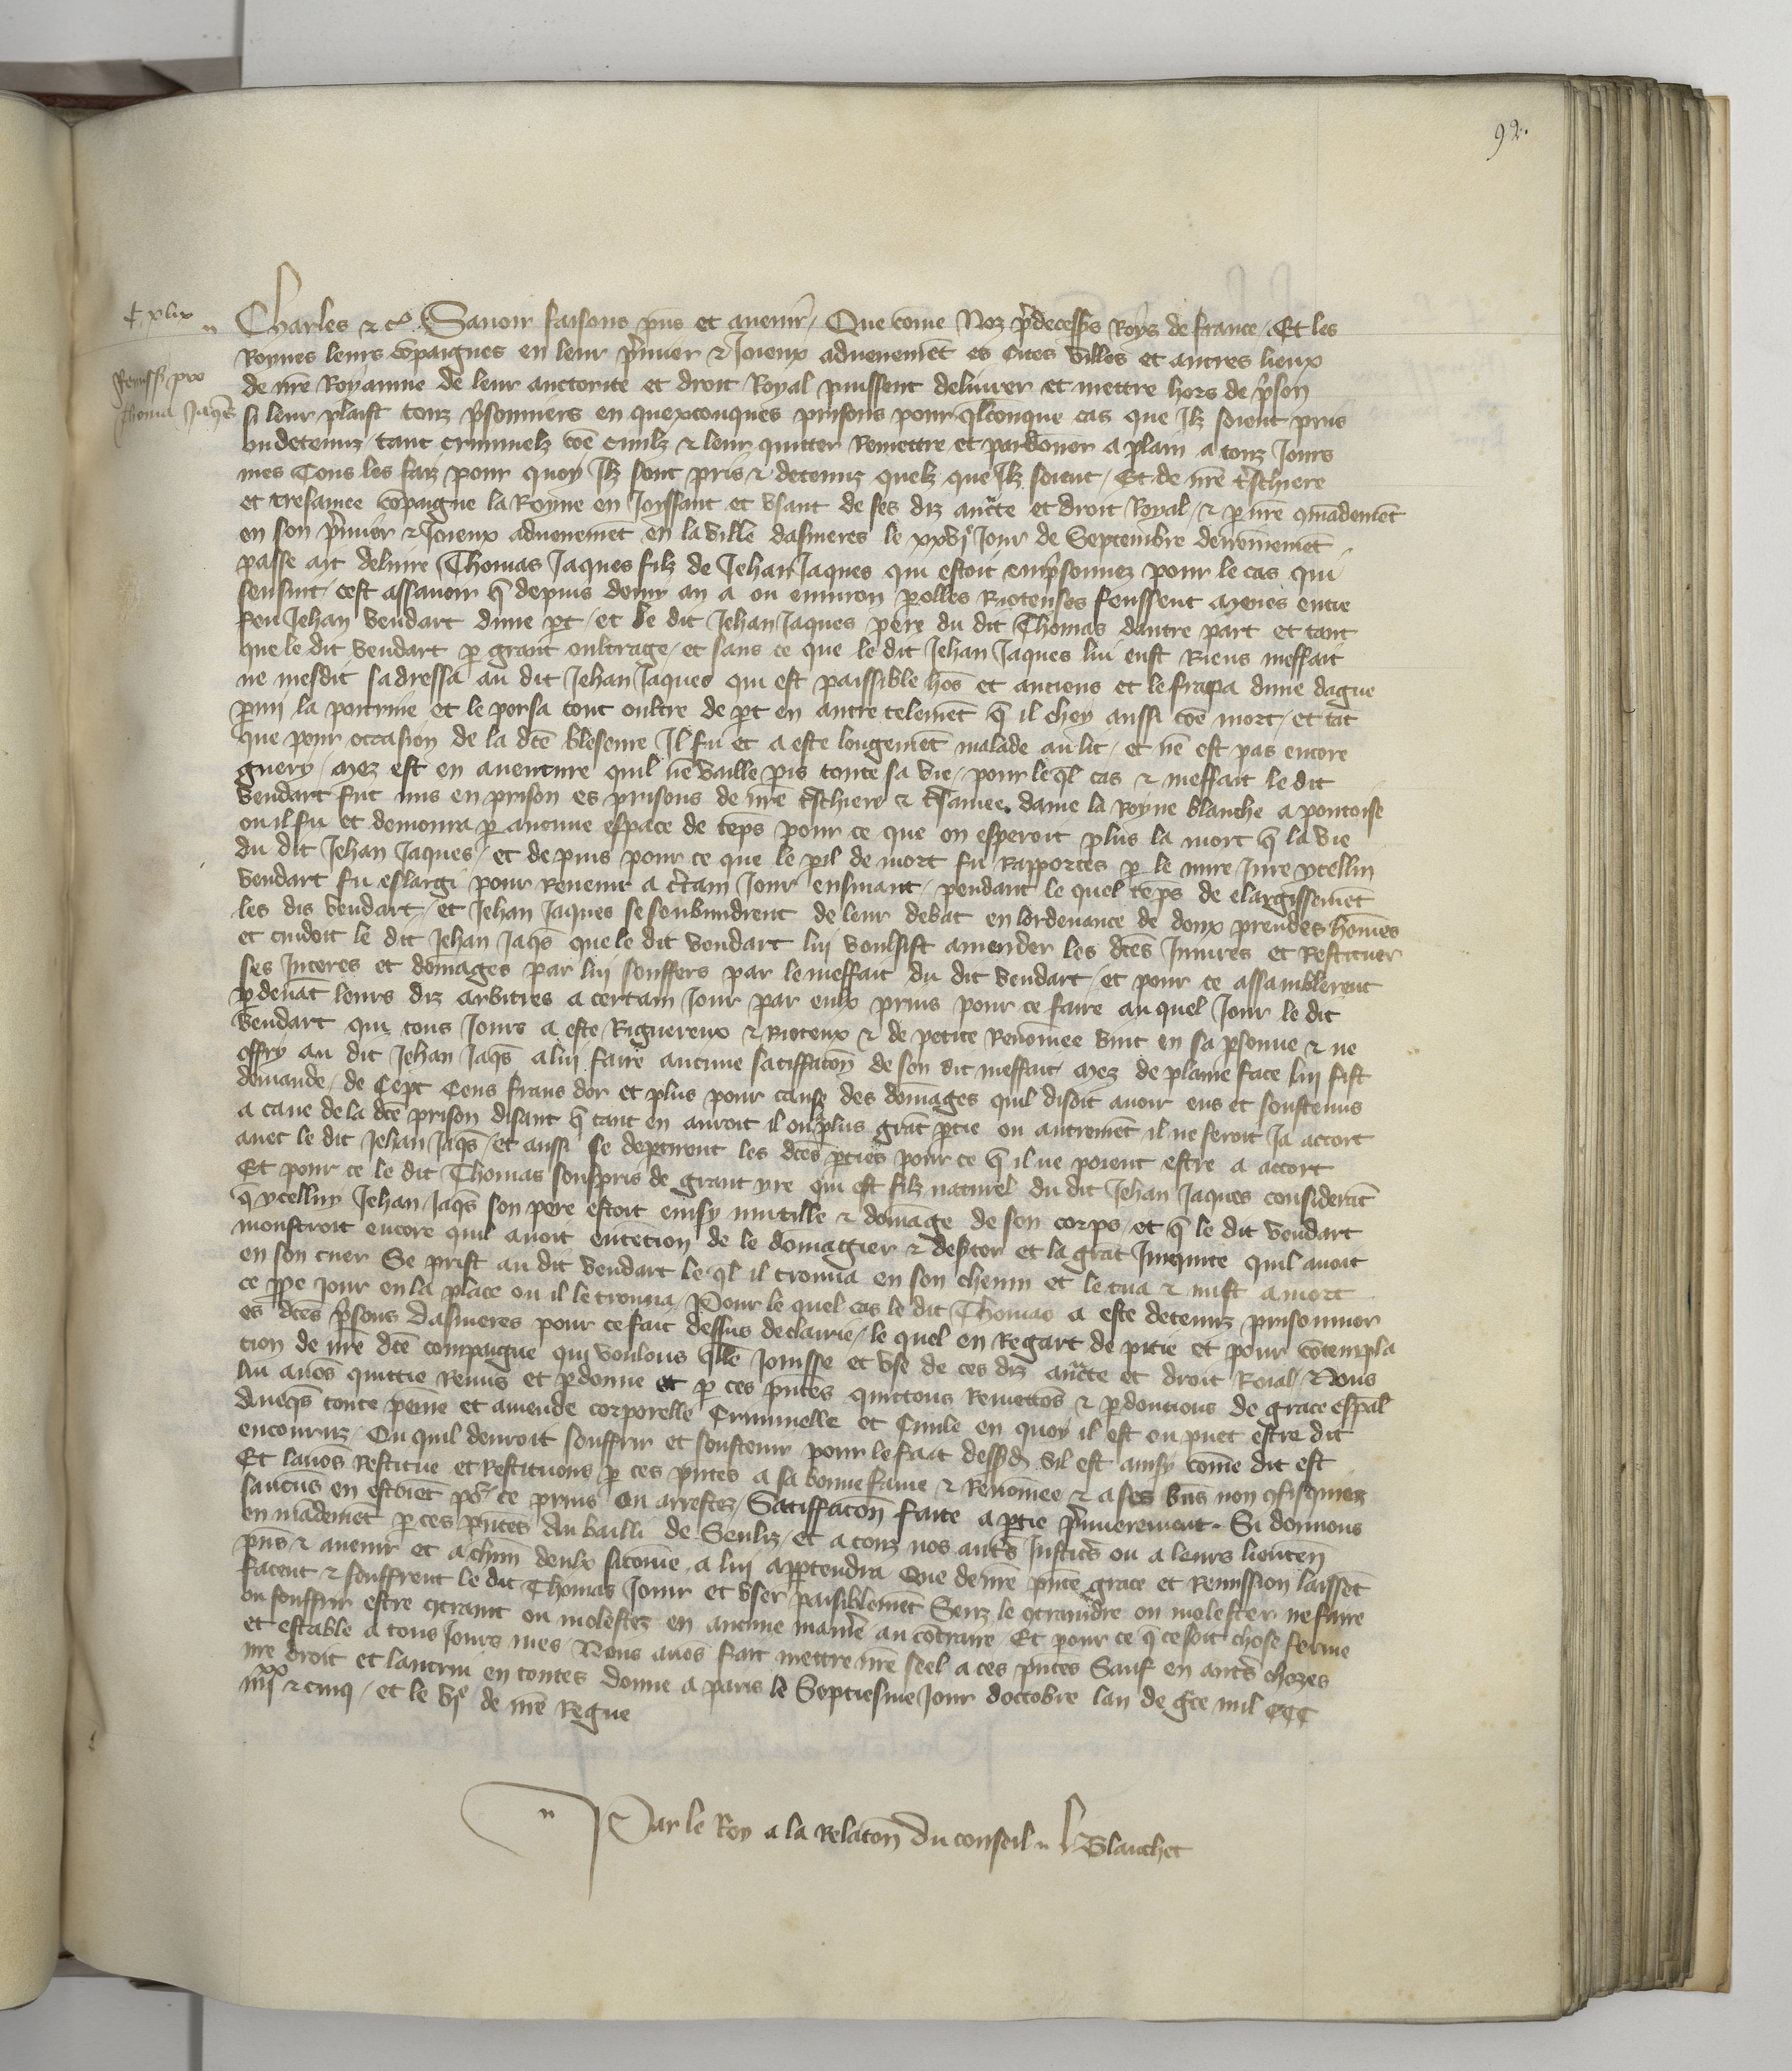 92.
C xlix
Remissio pro
Thoma Jaqs
Charles &c. Sauoir faisons pns et auenir / Que come Noz pdecesss Roys de france / Et les
Roynes leurs cõpaignes en leur pmier & Joieux aduenemẽt es cites villes et autres lieux
de nre Royaume de leur auctorite et droit Royal puissent deliurer et mettre hors de pson
si leur plaist touz psonniers en quexconques prisons pour qlconque cas que Jlz soient pris
ou detenuz / tant criminelz cõe ciuilz & leur quitter Remettre et pardoner a plain a touz Jours
mes Tous les faiz pour quoy Jlz sont pris & detenuz quelz que Jlz soient / Et de nre tschiere
et tresamee cõpaigne la Royne en Joissant et vsant de ses diz aucte et droit Royal / & p nre cmãdemẽt
en son pmier & Joieux aduenemẽt en la ville dasnieres le xxvje Jour de Septembre derreniemẽt
passe ait deliure Thomas Jaques filz de Jehan Jaques qui estoit empsonnez pour le cas qui
sensuit / cest assauoir q depuis demy an a ou enuiron polles Rioteuses feussent meues entre
feu Jehan vendart dune pt / et le dit Jehan Jaques pere du dit Thomas dautre part et tant
que le dit vendart p grant oultrage / et sans ce que le dit Jehan Jaques lui eust Riens meffait
ne mesdit sadressa au dit Jehan Jaques qui est paissible hõs et anciens et le frapa dune dague
pmi la poitrine et le persa tout oultre de pt en autre telemẽt q il chey aussi cõe mort / et tãt
que pour occasion de la dte bleseure Jl fu et a este longuemẽt malade au lit / et ne est pas encore
guery / mez est en auenture quil ne vaille pis toute sa vie / pour leql cas & meffait le dit
vendart fut mis en prison es prisons de nre tschiere & tsamee dame la Royne blanche a pontoise
ou il fu et demoura p aucune espace de tẽps pour ce que on esperoit plus la mort q la vie
du dit Jehan Jaques / et depuis pour ce que le pil de mort fu Rapportes p le mire Jure ycellui
vendart fu eslargi pour Reuenir a ctain Jour ensuiuant / pendant le quel tẽps de elargissemẽt
les dis vendart / et Jehan Jaques se soubmidrent de leur debat en lordenance de deux preudes homes
et cuidoit le dit Jehan Jaqs que le dit vendart lui voulsist amender les dtes Iniures et Restituer
ses Interes et domages par lui souffers par le meffait du dit vendart / et pour ce assamblerent
pdeuãt leurs diz arbitres a certain Jour par eulx prins pour ce faire au quel Jour le dit
vendart qui tous Jours a este Riguereux & Rioteux & de petite Renommee vint en sa psonne & ne
offry au dit Jehan Jaqs a lui faire aucune satiffacõn de son dit meffait mez de plaine face lui fist
demande / de Cept Cens frans dor et plus pour cause des domages quil disoit auoir eus et soustenus
a cause de la dte prison disant q tant en auroit il ou plus grãt ptie ou autremẽt il ne feroit Ja accort
auec le dit Jehan Jaqs / et aussi se deptirent les dtes pties pour ce q il ne poient estre a accort
Et pour ce le dit Thomas souspris de grant yre qui est filz naturel du dit Jehan Jaques considerãt
q ycellui Jehan Jaqs son pere estoit ensy mutille & domage de son corps / et q le dit vendart
monstroit encore quil auoit entẽcion de le domagier & depter et la grãt Iniquite quil auoit
en son cuer Se prist au dit vendart le ql il trouua en son chemin et le tua & mist a mort
ce ppe jour en la place ou il le trouua / Pour le quel cas le dit Thomas a este detenuz prisonnier
es dtes psons dasnieres pour ce fait dessus declairie / le quel en Regart de pitie et pour cõtempla
tion de nre dte compaigne qui voulons qlle Jouisse et vse de ces diz aucte et droit Roial / Nous
lui auõs quittie Remis et pdonne et p ces pntes quittons Remettõs & pdonnons de grace espãl
auecqs toute peine et amende corporelle Criminelle et Ciuile en quoy il est ou puet estre dit
encouruz / Ou quil deuroit souffrir et soustenir pour le fait dessd sil est ainsy come dit est
Et lauõs Restitue et Restituons p ces pntes a sa bonne fame & Renommee & a ses biẽs non cfisquiez
saucuns en estoiẽt po ce prins ou arrestez / Satiffacõn faite a ptie pmierement. Si donnons
en mãdemẽt p ces pntes Au bailli de Senliz / et a touz nos auts Justics ou a leurs lieuteñ
pns & auenir et a chun deulx sicome a lui apptendra Que de nre pnte grace et Remission laissẽt
facent & souffrent le dit Thomas Jouir et vser paisiblemẽt Senz le ctraindre ou molester ne faire
ou souffrir estre ctraint ou molestez en aucune maniere au cõtraire / Et pour ce q ce soit chose ferme
et estable a tous Jours mes Nous auõs fait mettre nre seel a ces pntes Sauf en auts chozes
nre droit et lautrui en toutes donne a paris le Septiesme Jour doctobre lan de gce mil CCC
iiijxx & cinq / et le vje de nre Regne
Par le Roy a la Relacõn du conseil Blanchet